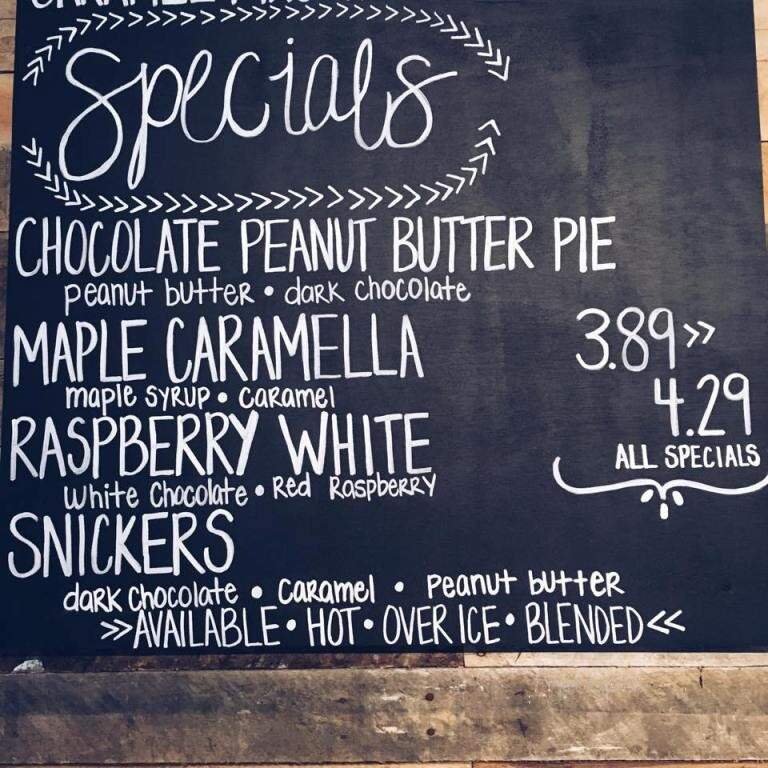 Specials
CHOCOLATE PEANUT BUTTER PIE
peanut butter • dark chocolate
MAPLE CARAMELLA
maple SYRUP • caramel
RASPBERRY WHITE
white Chocolate • Red Raspberry
SNICKERS
dark chocolate • caramel • Peanut butter
>>AVAILABLE • HOT • OVER ICE • BLENDED<<
3.89>>
4.29
ALL SPECIALS